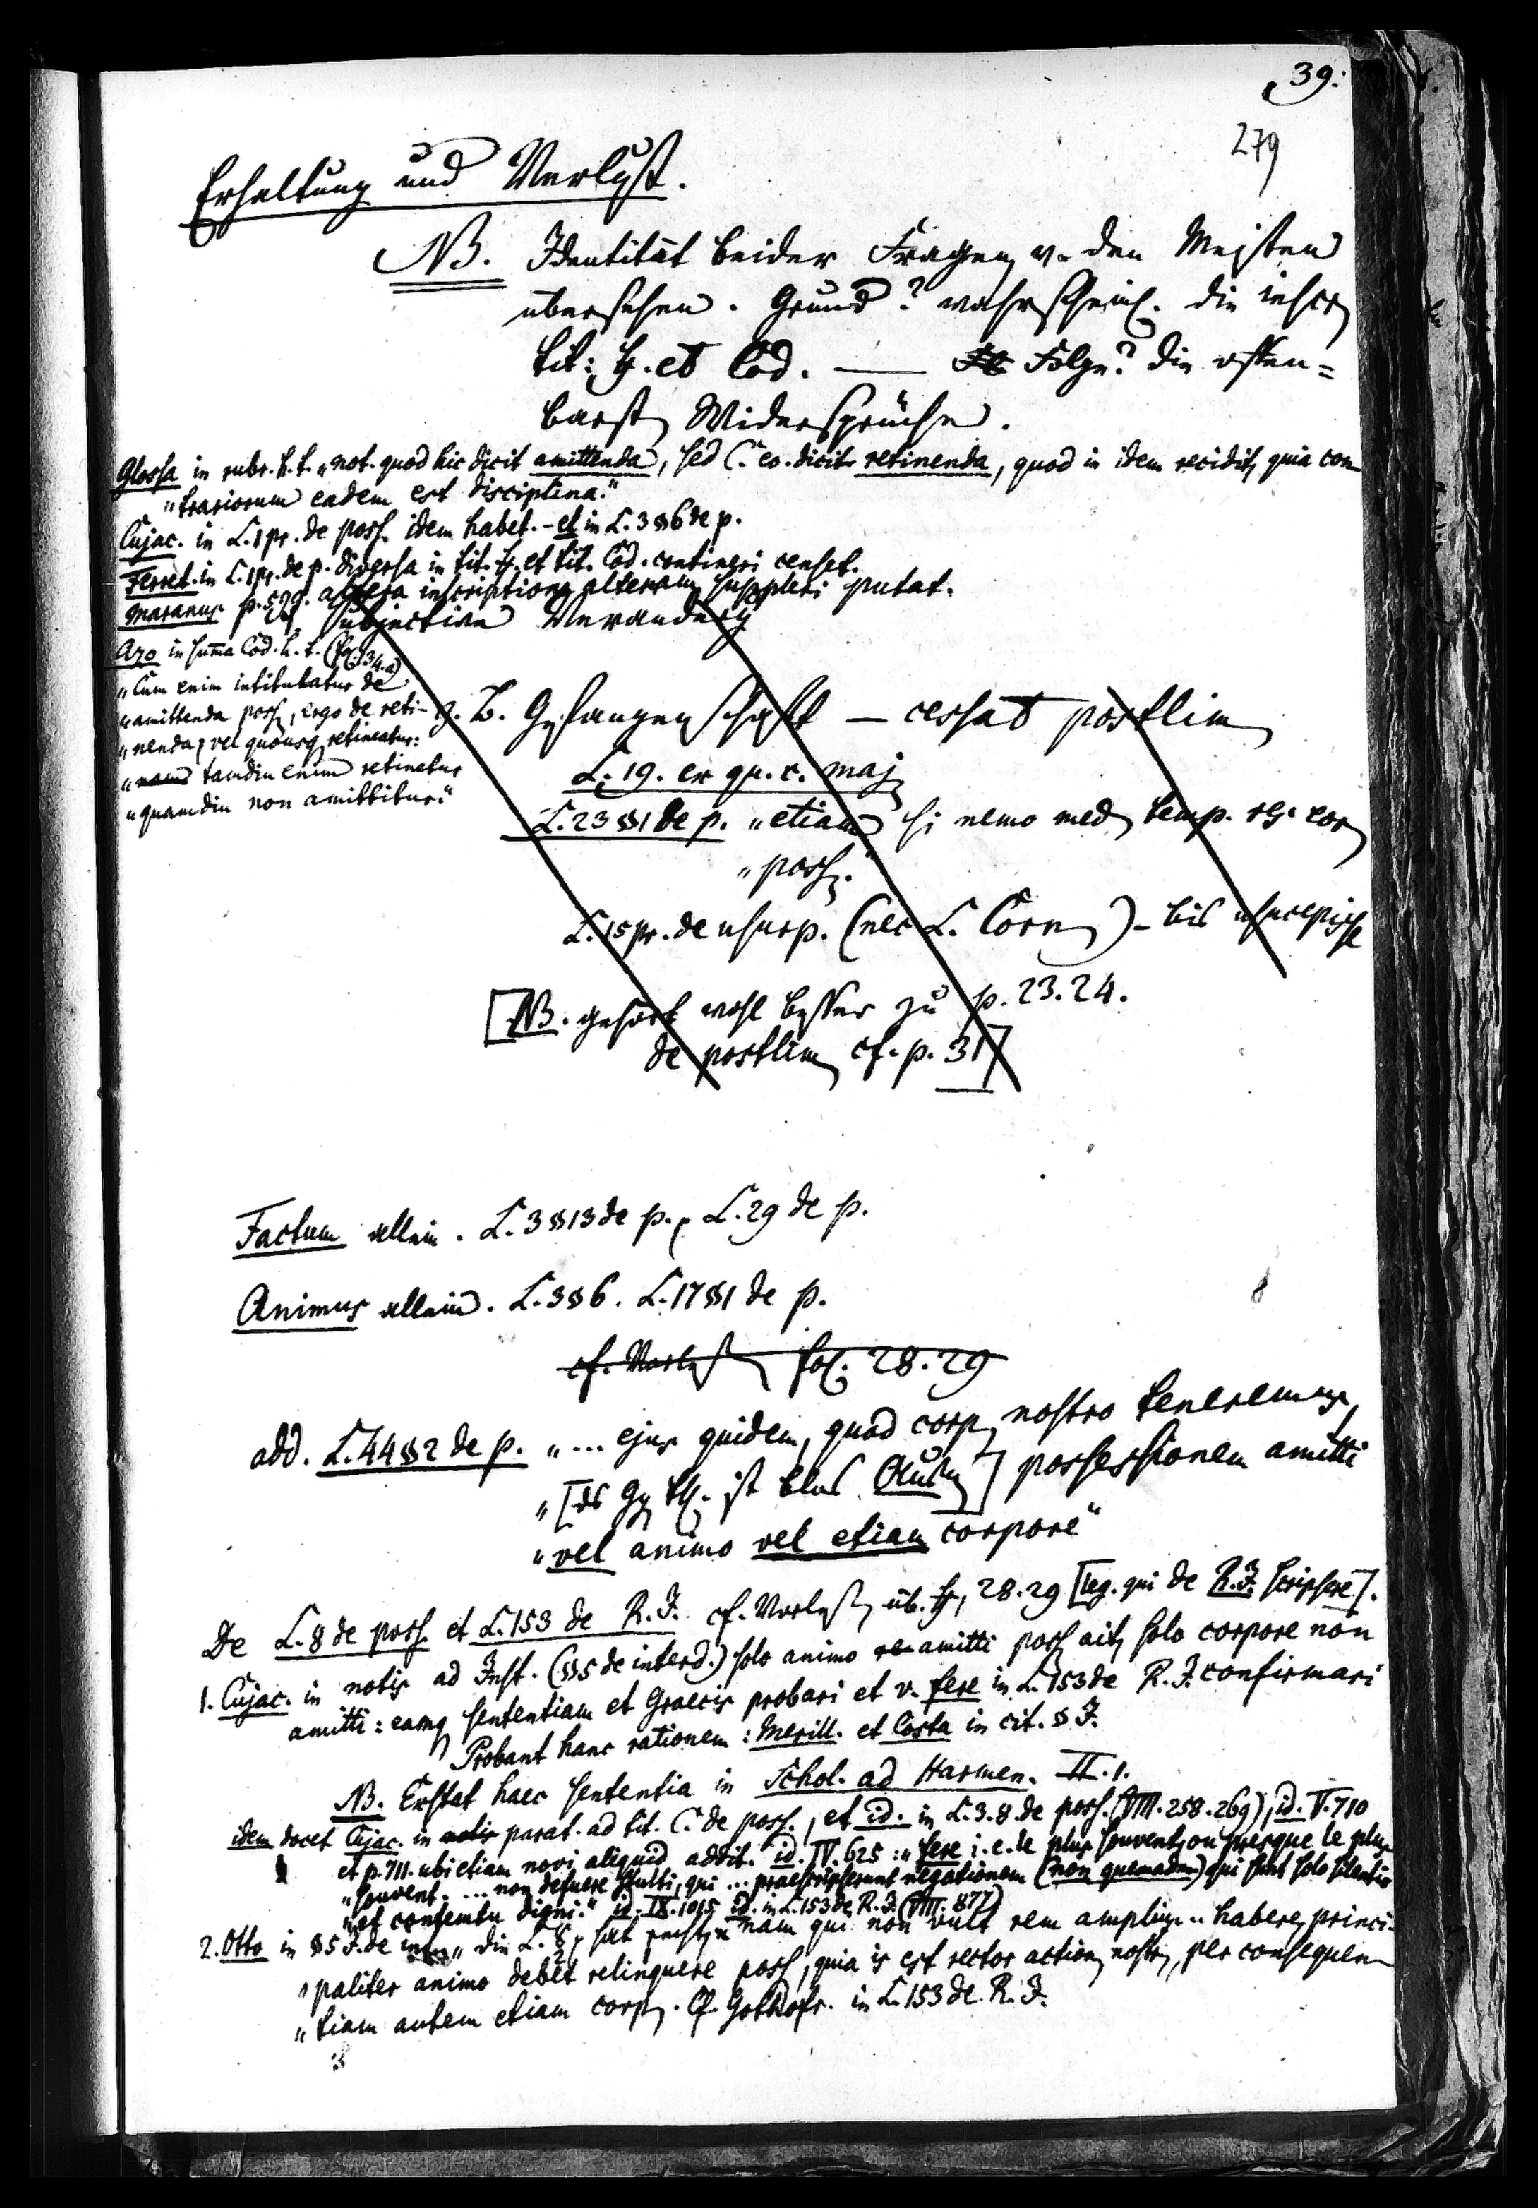 39.
279
Erhaltung und Verlust.
NB. Identität beider Fragen v. den Meisten
übersehen. Grund? wahrscheinl. die inscr
tit: ff. et Cod. — Folge? die offen=
barst Widersprüche.
Glossa in rubr. h. t. „not. quod hic dicit amittenda, sed C. eo. dicit retinenda, quod in idem recidit, quia con
„trariorum eadem est disciplina."
Cujac. in L. 1 pr. de poss. idem habet. – et in L. 3 § 6 de p.
Ferret. in L. 1 pr. de p. diversa in tit. ff. et tit. Cod. contineri censet.
Maranus p. altera inscription alteram suppleri putat.
subjective Veränderg
Azo in summa Cod. h. t. (fol. 134.a)
„Cum enim intitulatur de
„amittenda poss, ergo de reti-
„nenda, vel quousq retineatur:
„nam tamdiu enim retinetur
„quamdiu non amittitur."
z. B. Gefangenschaft — cessat postlim
L. 19. ex qu. c. maj
L. 23 § 1 de p. „etiam si nemo med temp. rs. eor
„poss."
L. 15 pr. de usurp. (nec L. Corn) – bis usucepisse
[NB. gehört wohl besser zu p. 23. 24.
de postlim cf. p. 31]
Factum allein. L. 3 § 13 de p., L. 29 de p.
Animus allein. L. 3 § 6. L. 17 § 1 de p.
cf. Vorles fol. 28. 29
add. L. 44 § 2 de p. „... ejus quidem, quod corp nostro teneremus,
„[ist blos] possessionem amitti
„vel animo vel etiam corpore"
De L. 8 de poss. et L. 153 de R. J. cf. Vorles üb. ff, 28. 29 [leg. qui de R. J. scripsere].
1. Cujac. in notis ad Inst. (§ 5 de interd.) solo animo amitti poss ait, solo corpore non
amitti: eamq sententiam et Graecis probari et v. fere in L. 153 de R. J. confirmari
Probant hanc rationem: Merill. et Costa in cit. § J.
NB. Exstat haec sententia in Schol. ad Harmen. II. 1.
idem docet Cujac. in notis parat. ad tit. C. de poss., et id. in L. 3. 8. de poss. (VIII. 258. 269), id. V. 710
et p. 711. ubi etiam novi aliquid addit. id. IV. 625: „fere i. e. le plus souvent, ou presque le plus
„souvent. ... non defuere stulti, qui ... praescripserunt negationem (non quemadm) qui sunt solo silentio
„et contemtu digni." id. IX. 1015 id. in L. 153 de R. J. (VIII. 877)
2. Otto in § 5 J. de interd. „die L. 8, nam qui non vult rem amplius .. habere, princi-
„paliter animo debet relinquere poss, quia is est rector action nostr, per consequen
„tiam autem etiam corp. Cf. Gothofr. in L. 153 de R. J.
3